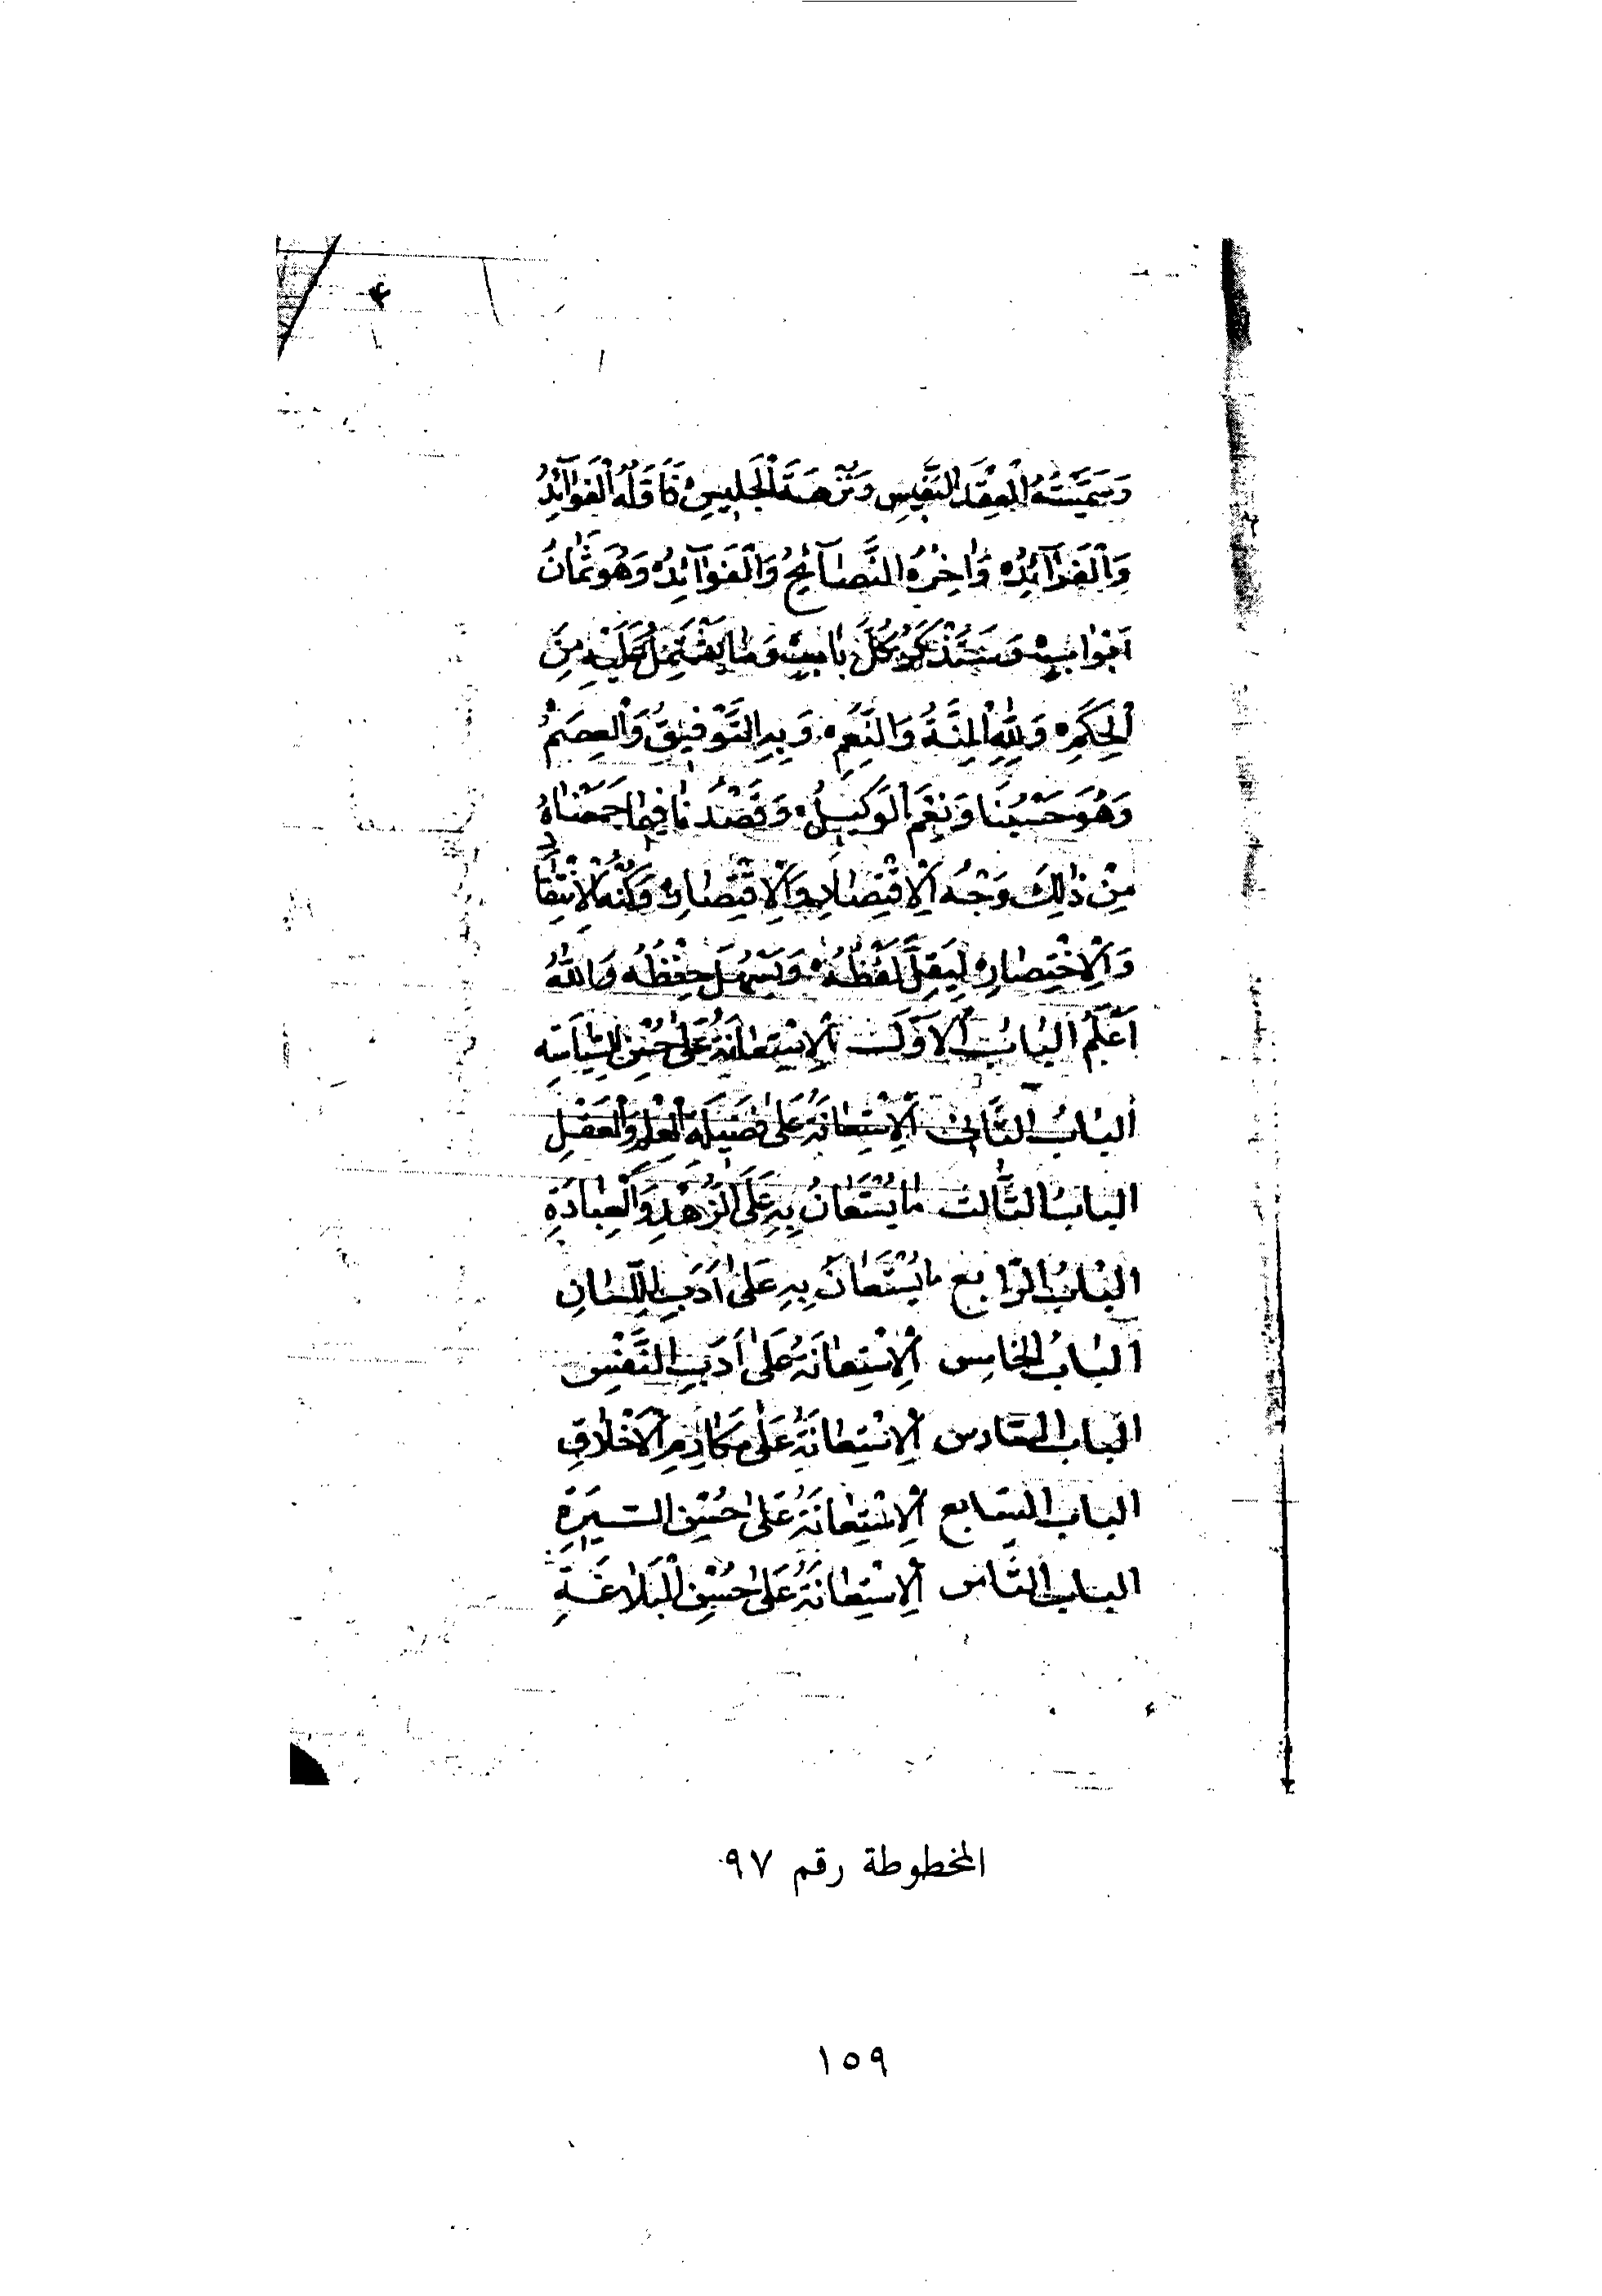 ٤
وَسَمَّيْتُهُ الْعِقْدَ النَّفِيسِ وَنُزْهَةَ الْجَلِيسِ فَأَوَّلُهُ الْفَوَآئِدُ
وَالْفَرَآئِدُ وَاٰخِرُهُ النَّصَآئِحُ وَالْفَوَآئِدُ وَهُوَ ثَمَانُ
أَبْوَابٍ وَسَنَذْكُرُ كُلَّ بَابٍ وَمَا يَشْتَمِلُ عَلَيْهِ مِنَ
الْحِكَمِ وَلِلّٰهِ الْمِنَّةُ وَالنِّعَمُ وَبِهِ التَّوْفِيقُ وَالْعِصَمُ
وَهُوَ حَسْبُنَا وَنِعْمَ الْوَكِيلُ وَقَصْدُنَا فِيمَا جَمَعْنَاهُ
مِنْ ذٰلِكَ وَجْهُ الْاِقْتِصَادِ وَالْاِقْتِصَارِ وَكُنْهُ الْاِنْتِقَاءِ
وَالْاِخْتِصَارِ لِيَقِلَّ لَفْظُهُ وَيَسْهُلَ حِفْظُهُ وَاللّٰهُ
أَعْلَمُ الْبَابُ الْأَوَّلُ الْاِسْتِعَانَةُ عَلَى حُسْنِ السِّيَاسَةِ
الْبَابُ الثَّانِي الْاِسْتِعَانَةُ عَلَى فَضِيلَةِ الْعِلْمِ وَالْعَقْلِ
الْبَابُ الثَّالِثُ مَا يُسْتَعَانُ بِهِ عَلَى الزُّهْدِ وَالْعِبَادَةِ
الْبَابُ الرَّابِعُ مَا يُسْتَعَانُ بِهِ عَلَى أَدَبِ اللِّسَانِ
الْبَابُ الْخَامِسُ الْاِسْتِعَانَةُ عَلَى أَدَبِ النَّفْسِ
الْبَابُ السَّادِسُ الْاِسْتِعَانَةُ عَلَى مَكَارِمِ الْأَخْلَاقِ
الْبَابُ السَّابِعُ الْاِسْتِعَانَةُ عَلَى حُسْنِ السِّيرَةِ
الْبَابُ الثَّامِنُ الْاِسْتِعَانَةُ عَلَى حُسْنِ الْبَلَاغَةِ
المخطوطة رقم ٩٧
١٥٩